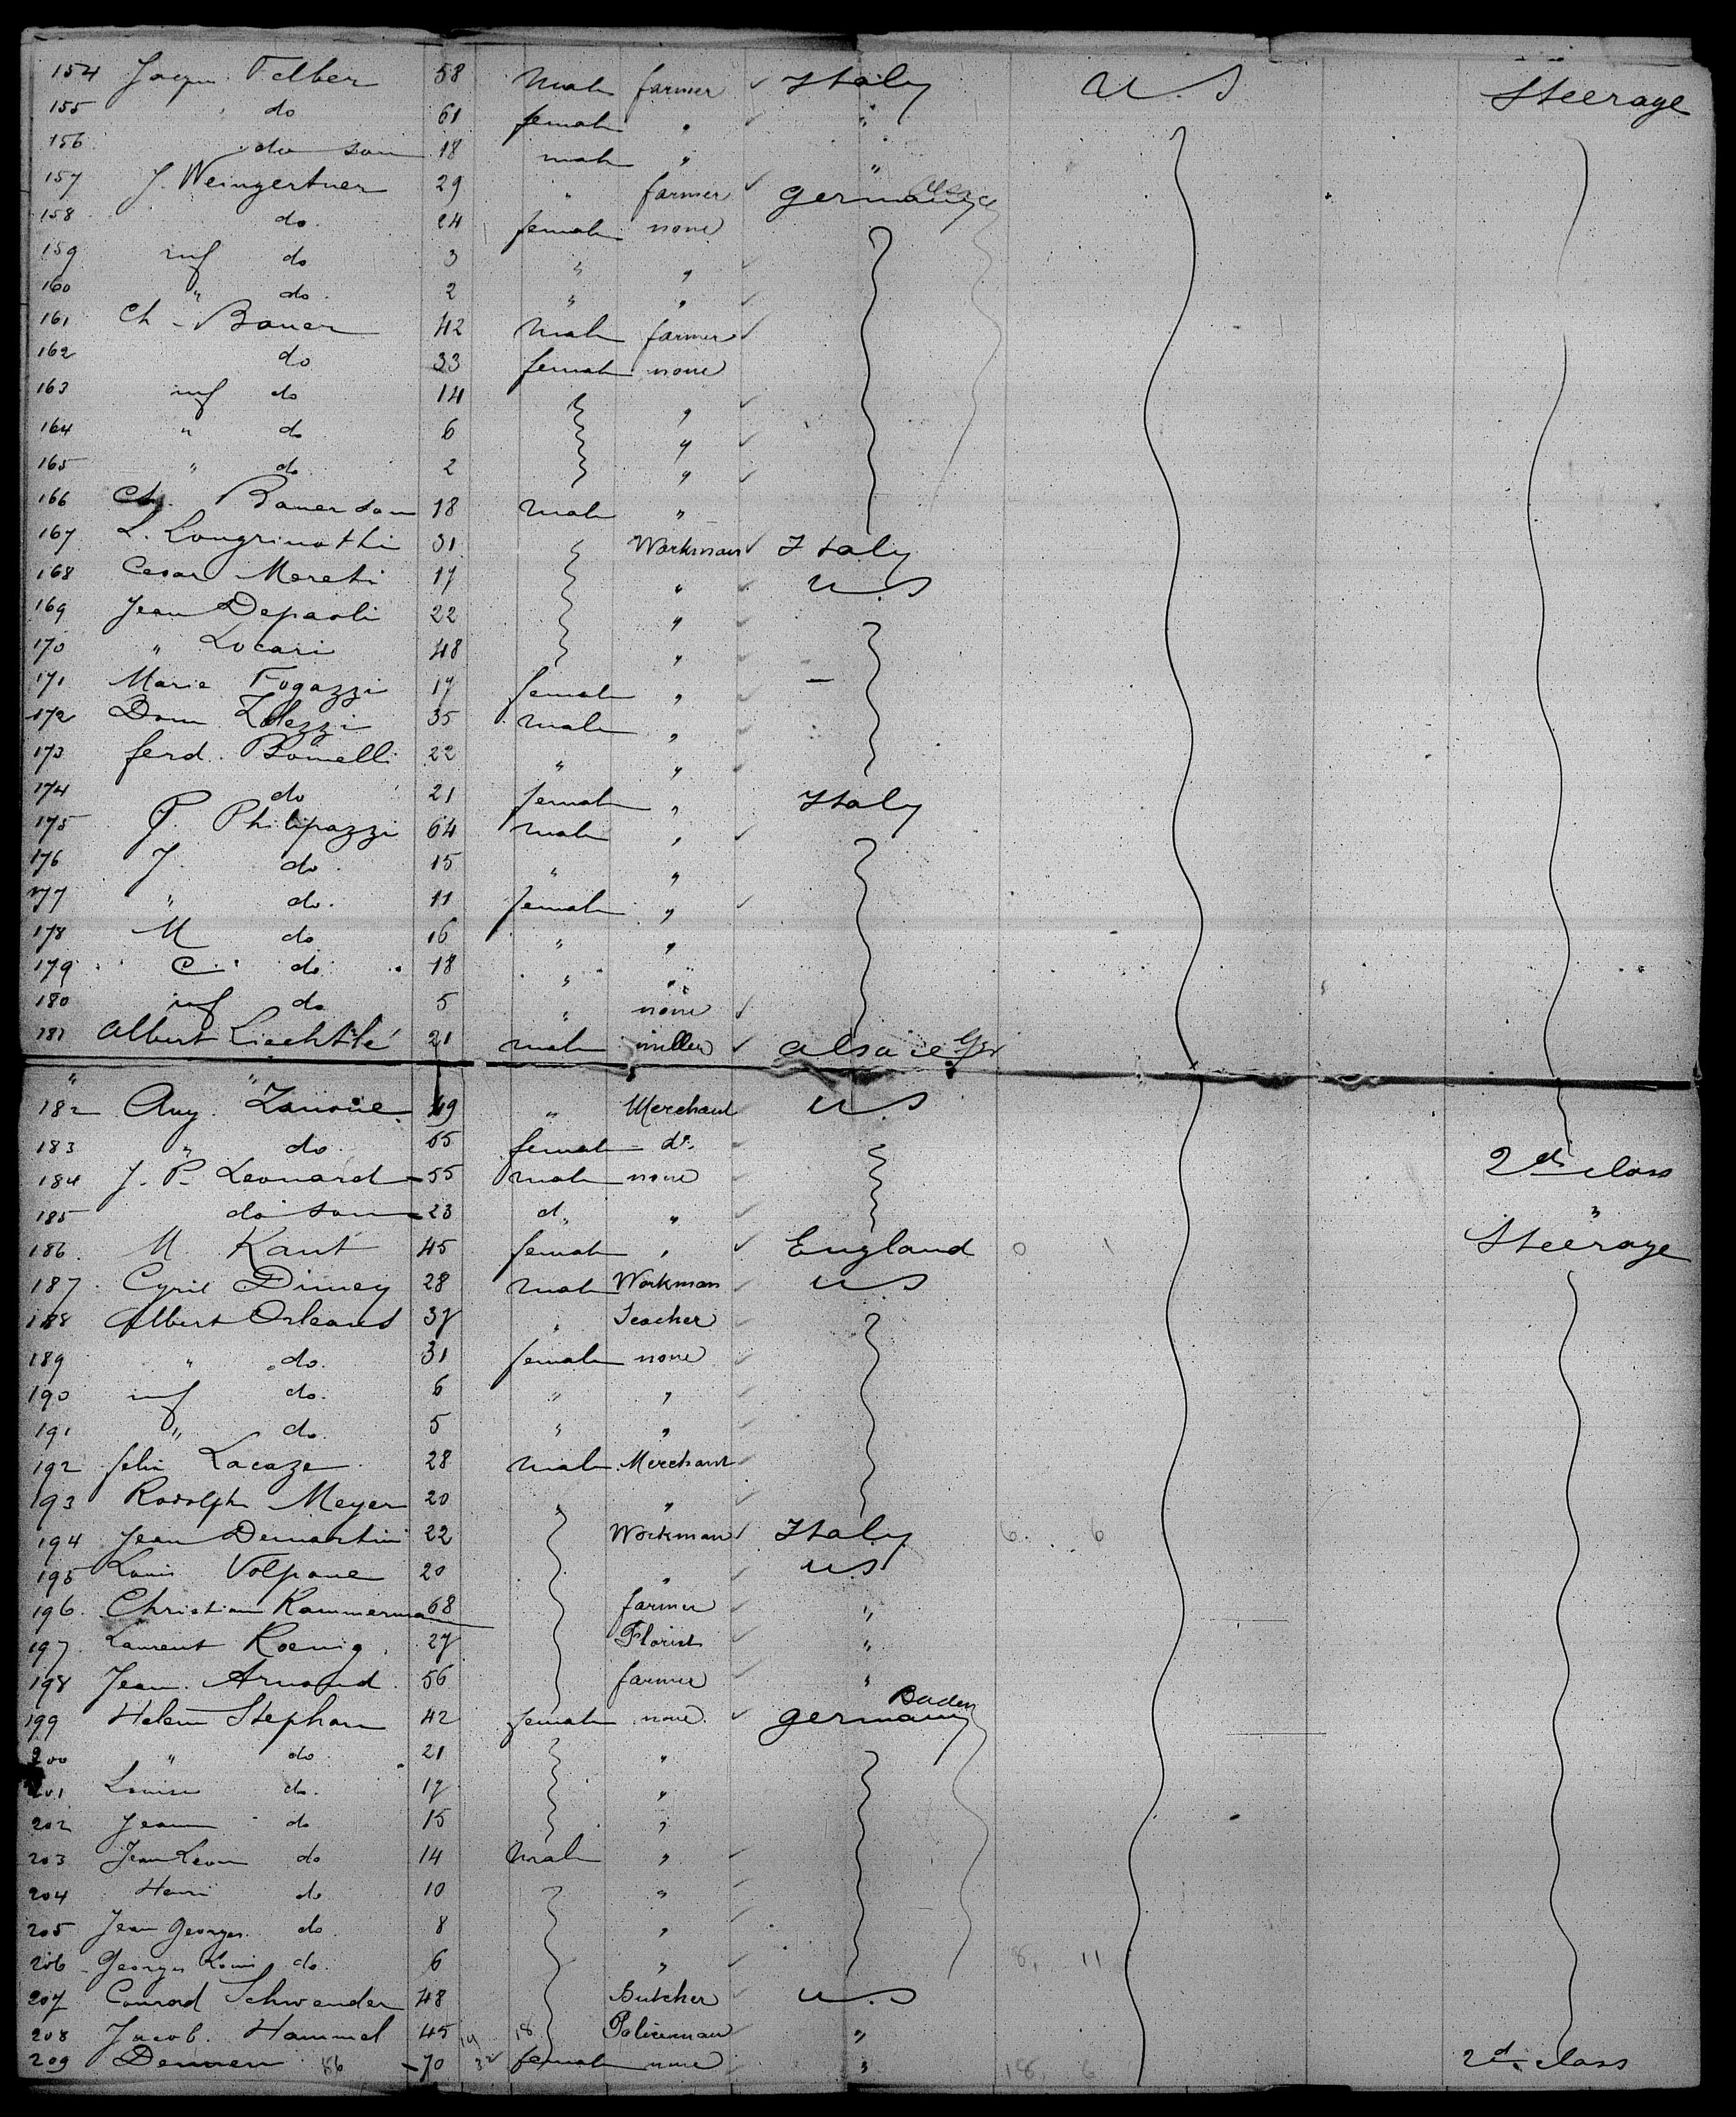 154 Jacqu. Felber 58 Male farmer ✓ Italy U.S Steerage
155 " do 61 female " ✓ "
156 do son 18 male " "
157 J. Weingertner 29 " farmer ✓ Germany
158 do. 24 female none
159 inf do 3 " " ✓
160 " do. 2 " " ✓
161 Ch - Bauer 42 Male farmer ✓
162 do 33 female none
163 inf do 14 " ✓
164 " do 6 " ✓
165 " do 2 " ✓
166 Ch. Bauer son 18 Male "
167 L. Longrinothi 31 Workman ✓ Italy
168 Cesar Moreti 17 " ✓ U.S
169 Jean Depaoli 22 " ✓
170 " Locari 48 " ✓
171 Marie Fogazzi 17 female " ✓
172 Dom Zolezzi 35 Male " ✓
173 ferd. Bomelli 22 " " ✓
174 do 21 female " Italy
175 P. Philipazzi 64 Male " ✓
176 J. do. 15 " "
177 " do. 11 female " ✓
178 M do 16 " "
179 C. do. 18 " "
180 inf do 5 " none ✓
181 Albert Liechtlé 21 male miller ✓ Alsace Ger
" "
182 Aug. Zanone 49 " Merchant U.S
183 " do. 55 female do. ✓
184 J. P. Leonard 55 Male none ✓ 2d class
185 do son 23 d " ✓ "
186. M. Kant 45 female " ✓ England 0 1 Steerage
187. Cyril Dimey 28 Male Workman ✓ U.S
188 Albert Orleans 37 " Teacher ✓
189 " do. 31 female none ✓
190 inf do. 6 " " ✓
191 " do. 5 " " ✓
192 felix Lacaze 28 Male Merchant ✓
193 Rodolph Meyer 20 " " ✓
194 Jean Demartini 22 Workman ✓ Italy 6 6
195 Louis Volpone 20 " ✓ U.S
196. Christian Kammermann 68 farmer ✓ "
197. Laurent Roenig. 27 Florist ✓ "
198 Jean. Arnold. 56 farmer ✓ "
Baden
199 Helene Stephan 42 female none ✓ Germany
200 " do. 21 "
201 Louise do. 17 "
202 Jeanne do 15 "
203 Jean Leon do 14 Male " ✓
204 Henri do 10 " ✓
205 Jean Georges. do. 8 " ✓
206 Georges Louis do. 6 " ✓ 8, 11
207 Conrad Schwender 48 Butcher ✓ U.S
208 Jacob. Hammel 45 18 Policeman ✓ "
209 Dennen 70 female none ✓ " 18, 6 2d class